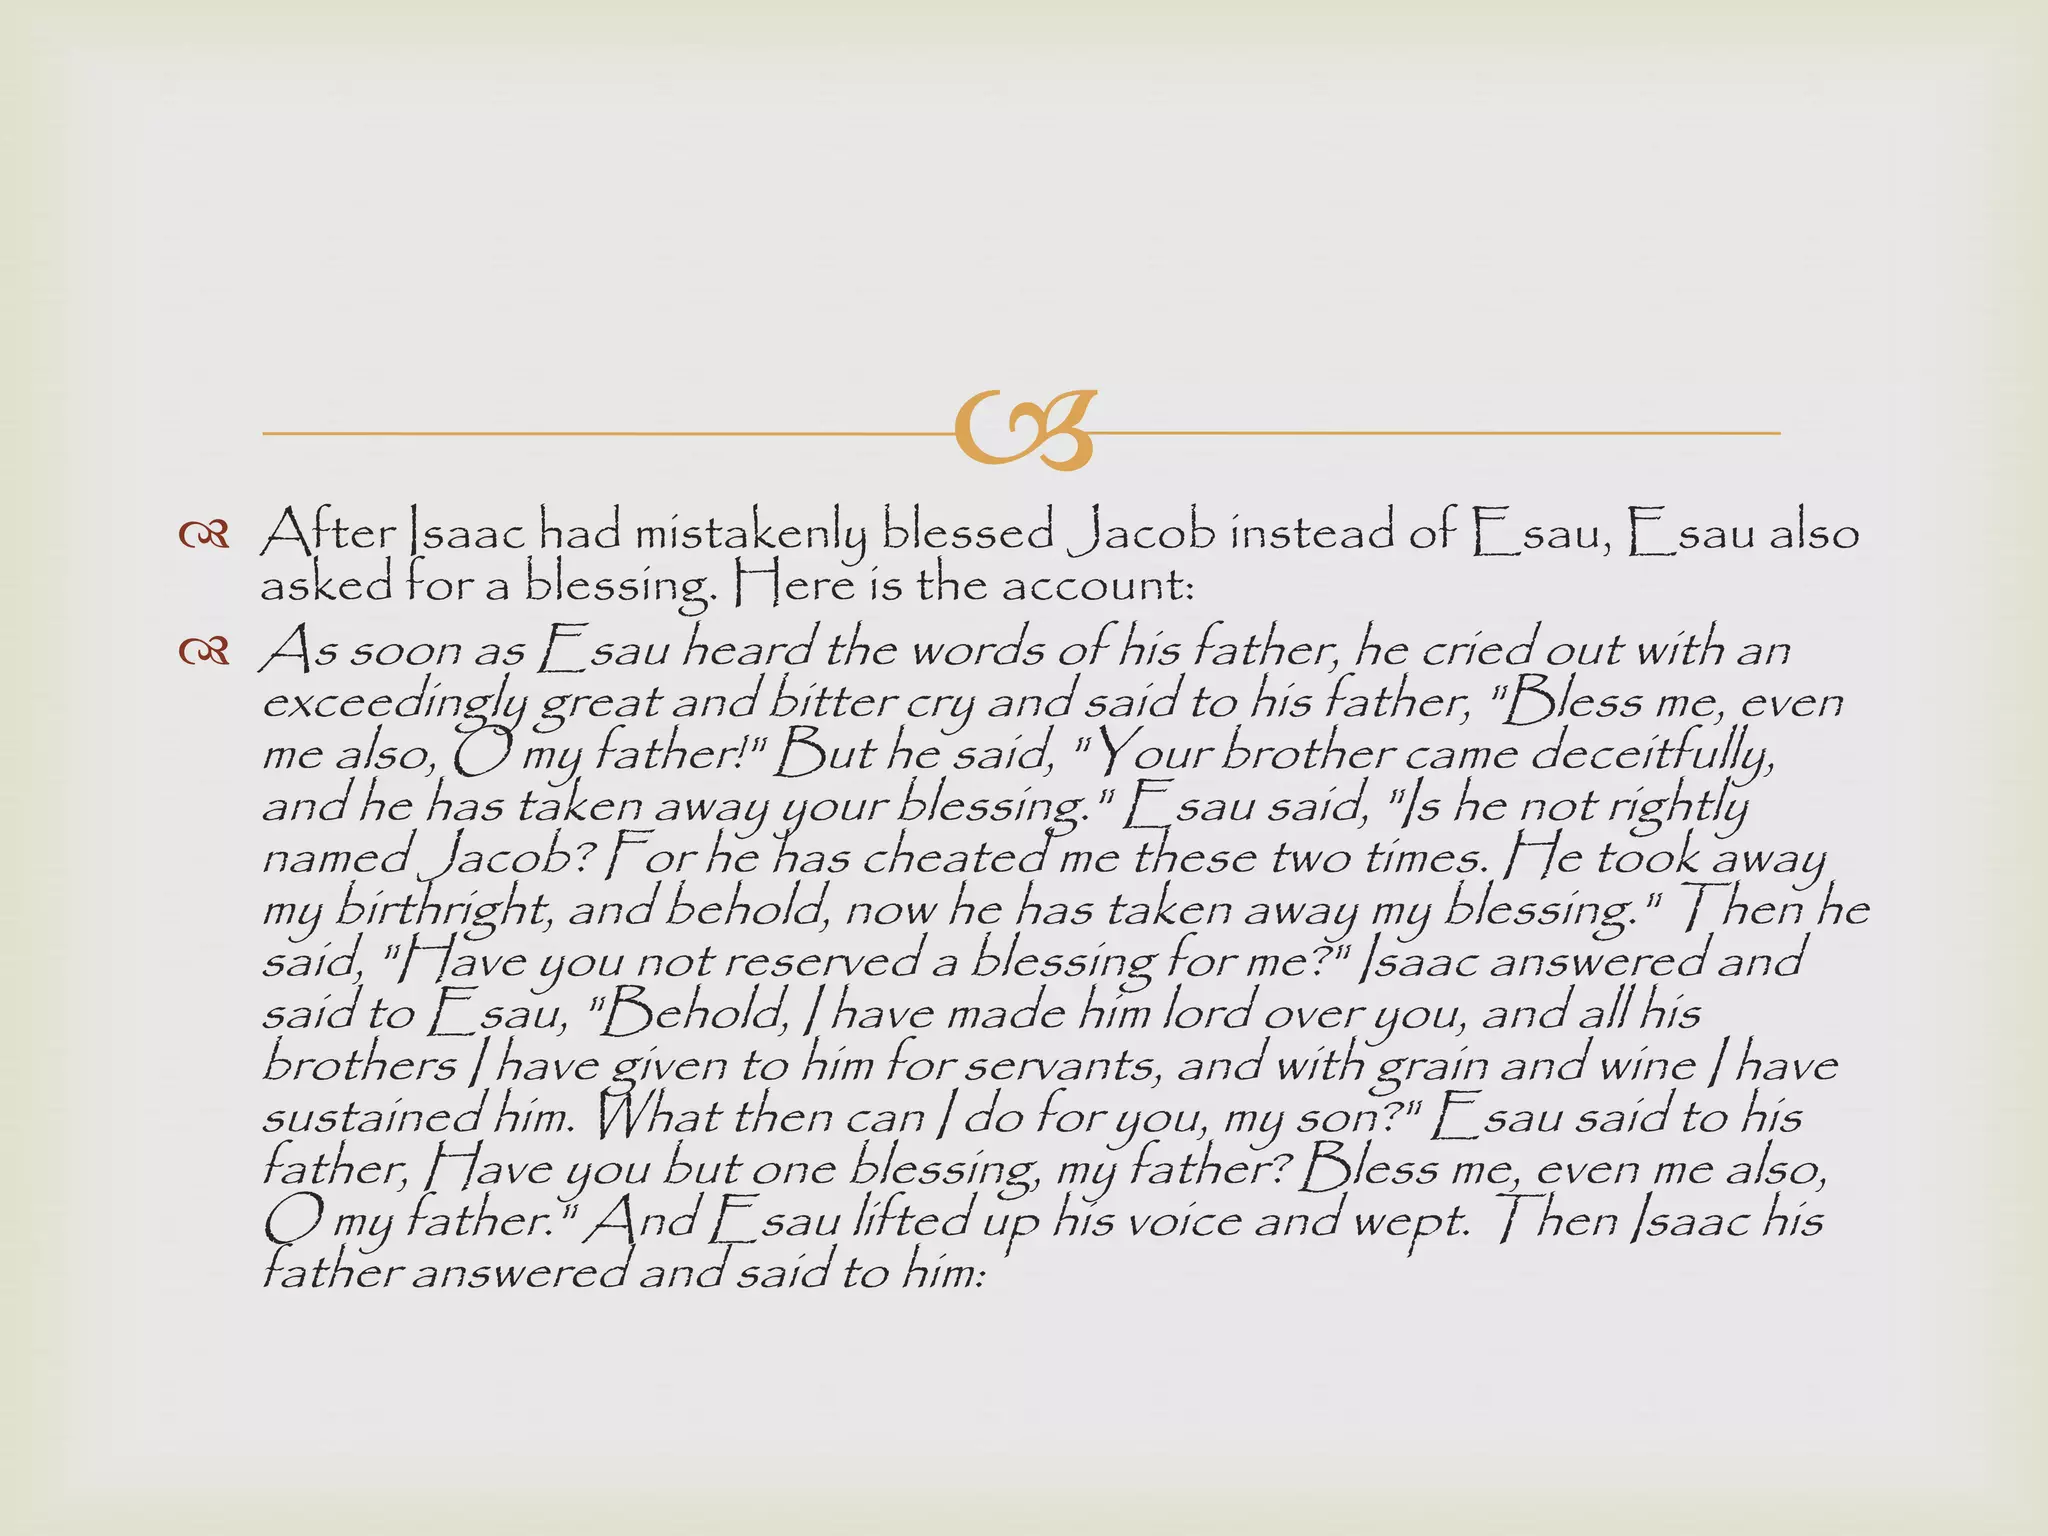 After Isaac had mistakenly blessed Jacob instead of Esau, Esau also
asked for a blessing. Here is the account:
As soon as Esau heard the words of his father, he cried out with an
exceedingly great and bitter cry and said to his father, "Bless me, even
me also, O my father!" But he said, "Your brother came deceitfully,
and he has taken away your blessing." Esau said, "Is he not rightly
named Jacob? For he has cheated me these two times. He took away
my birthright, and behold, now he has taken away my blessing." Then he
said, "Have you not reserved a blessing for me?" Isaac answered and
said to Esau, "Behold, I have made him lord over you, and all his
brothers I have given to him for servants, and with grain and wine I have
sustained him. What then can I do for you, my son?" Esau said to his
father, Have you but one blessing, my father? Bless me, even me also,
O my father." And Esau lifted up his voice and wept. Then Isaac his
father answered and said to him: